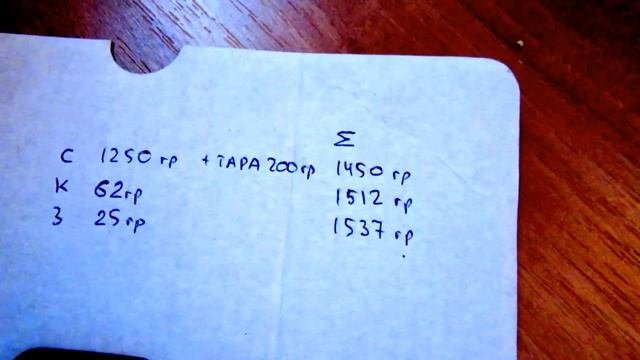 Σ
С 1250 гр + ТАРА 200 гр 1450 гр
К 62гр 1512 гр
З 25гр 1537 гр